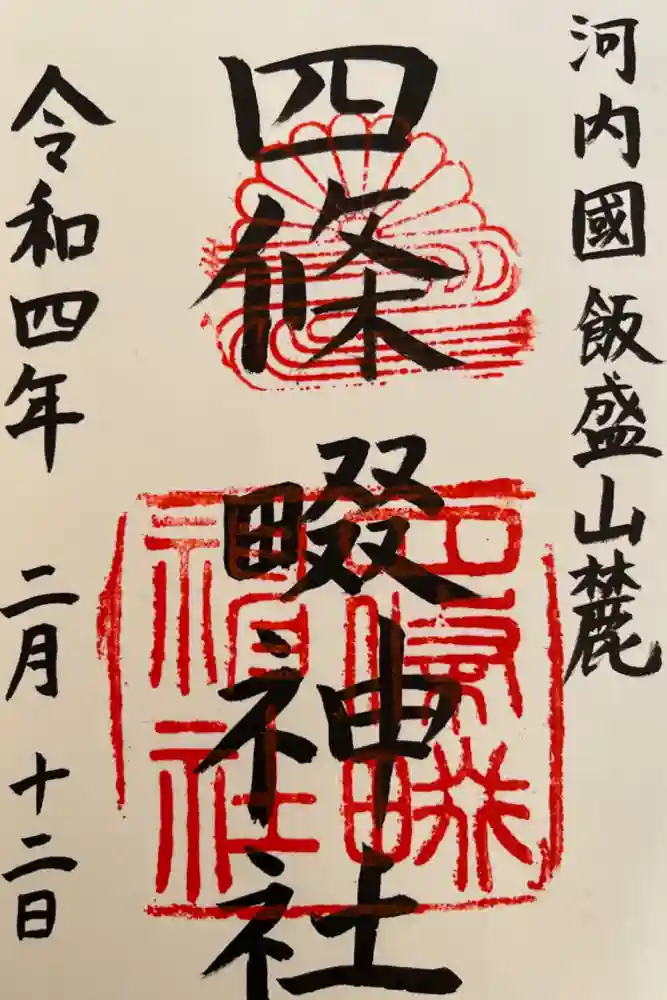 河内國飯盛山麓
四條畷神社
令和四年 二月 十二日